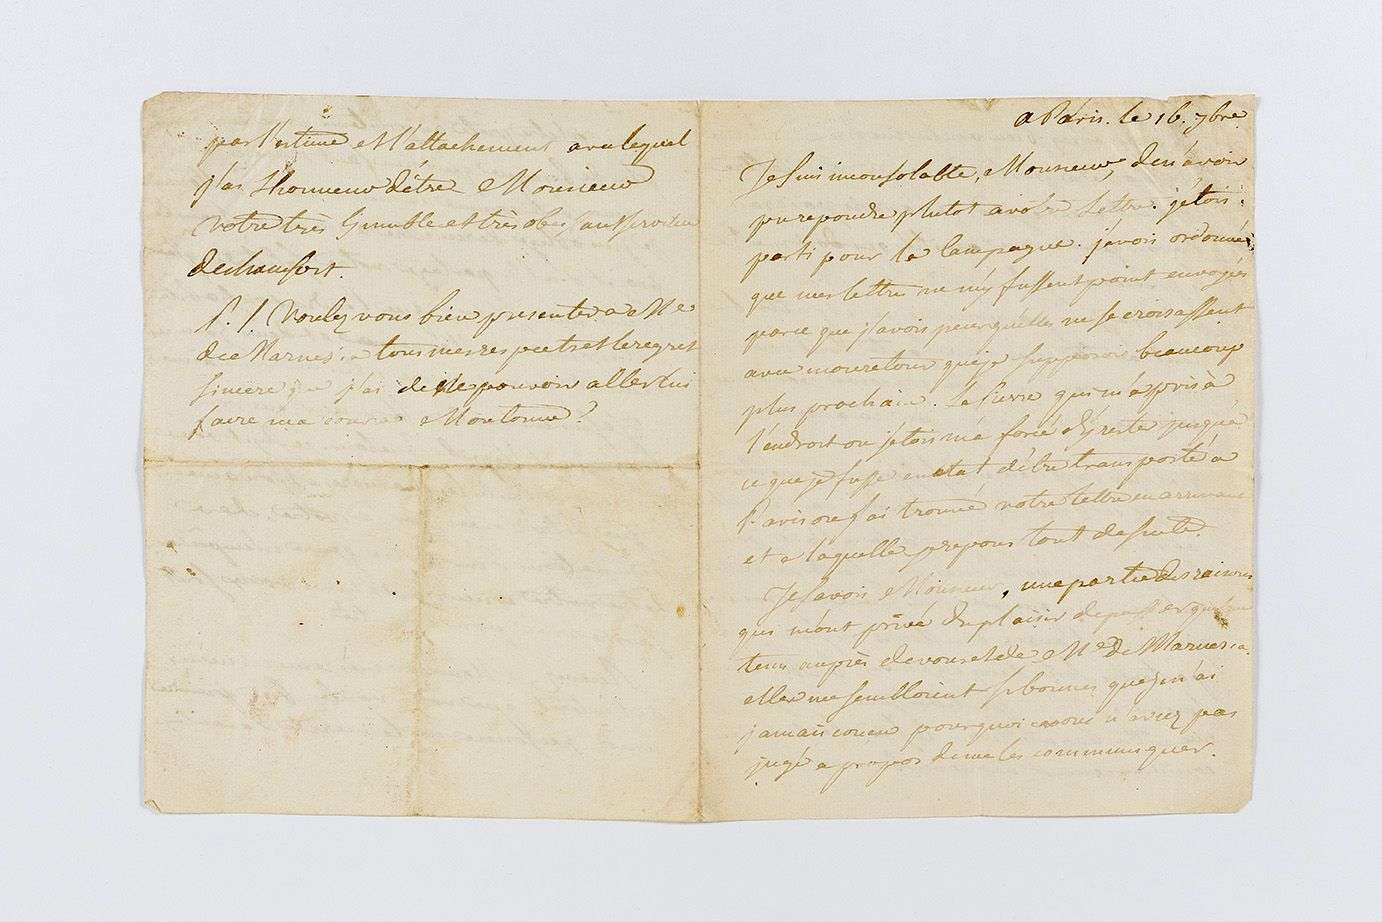 a Paris. le 16. 7bre.
Je suis inconsolable, Monsieur, de n'avoir
pu repondre plutot a votre Lettre. j'étois
parti pour la Campagne. j'avois ordonné
que mes lettres ne m'y fussent point envoyées
parce que j'avois peur qu'elles ne se croisassent
avec mon retour que je supposois beaucoup
plus prochain. La fievre qui m'a pris à
l'endroit ou j'etois m'a forcé d'y rester jusqu'a
ce que je fusse en etat d'être transporté a
Paris ou j'ai trouvé votre lettre en arrivant
et a laquelle je repons tout de suite.
Je savois Monsieur, une partie des raisons
qui m'ont privé du plaisir de passer quelque
tems auprès de vous et de Me de Marnesia.
elles me sembloient si bonnes que je n'ai
jamais concu pourquoi vous n'aviez pas
jugé a propos de me les communiquer.
par l'estime et l'attachement avec lequel
j'ai L'honneur d'être Monsieur
Votre très humble et très obeissant serviteur
de chamfort
P. S. Voulez vous bien presenter a Me
de Marnesia tous mes respects et le regret
sincere que j'ai de ne pouvoir aller lui
faire ma cour a Moutonne?